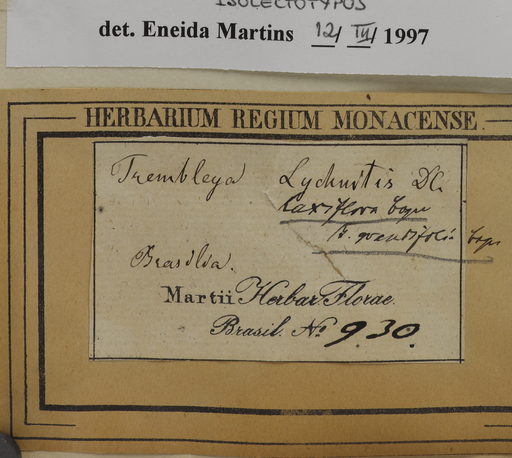 ISOLECTOTYPUS
det. Eneida Martins 12/ III/ 1997
HERBARIUM REGIUM MONACENSE
Trembleya Lychnitis DC.
laxiflora
Brasilia.
Martii Herbar. Florae.
Brasil. No 930.